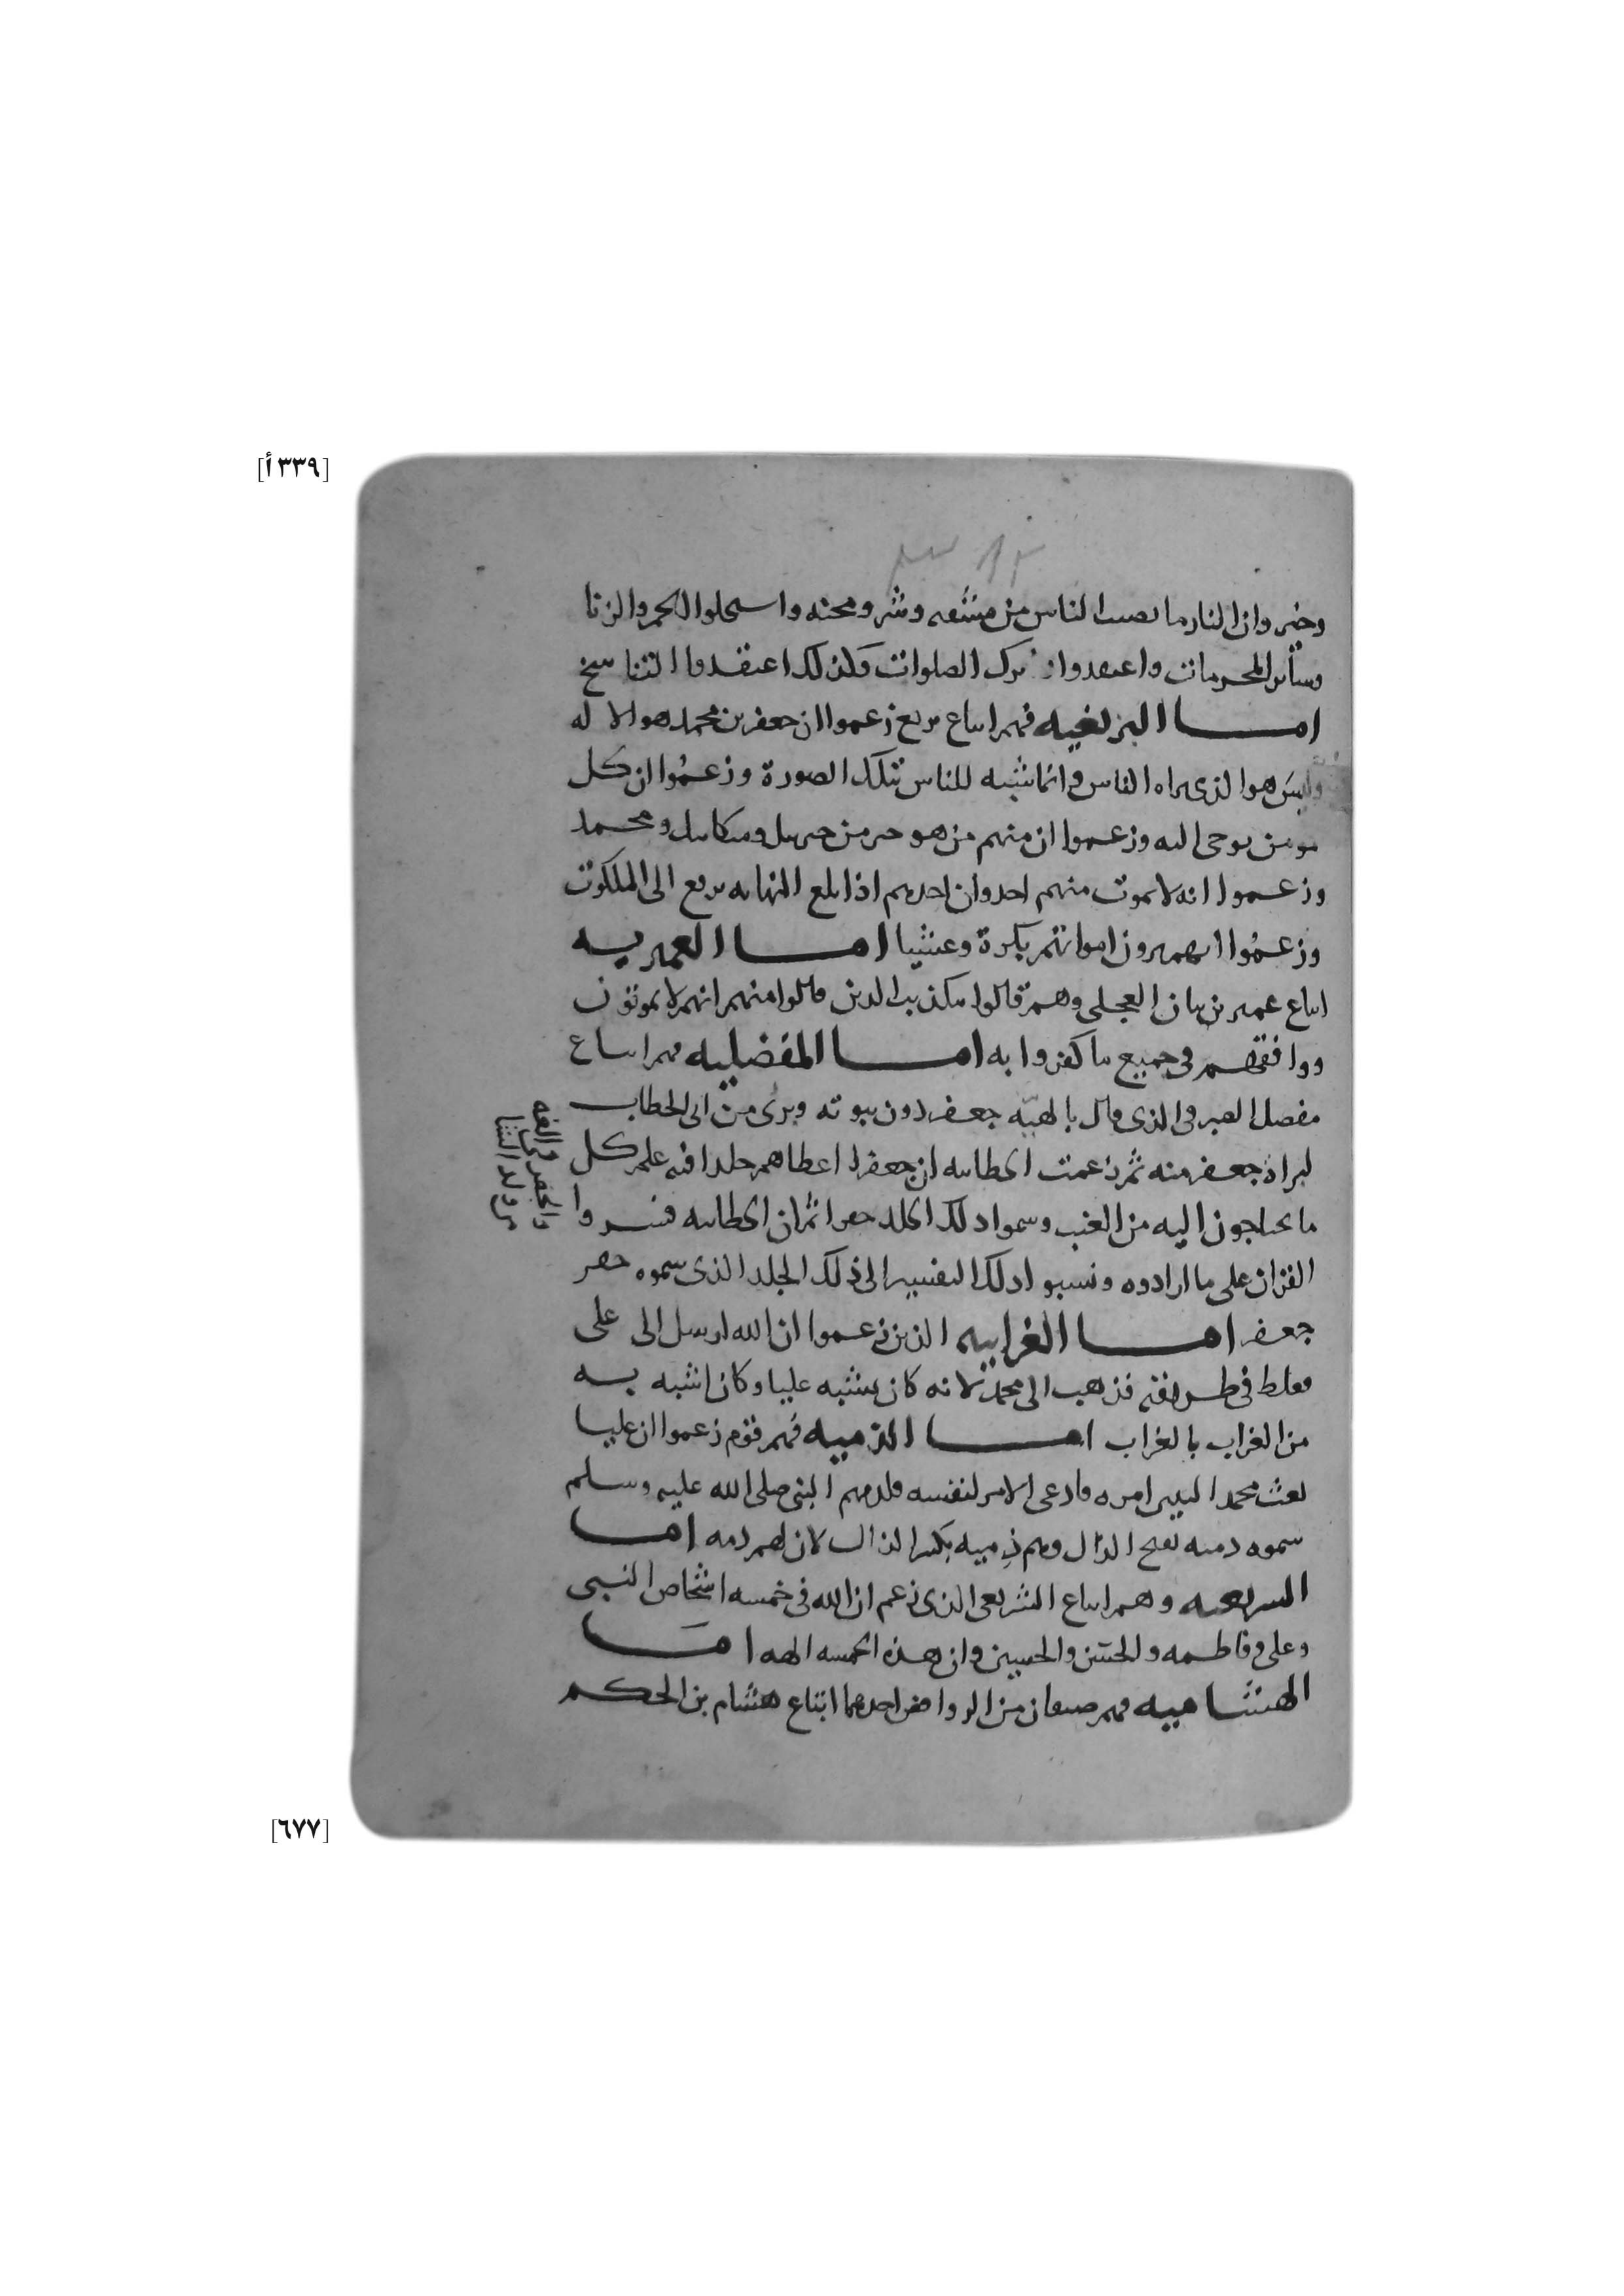 [٣٣٩أ]
وخير وان النار ما يصيب الناس من مشقه وشر ومحنه واستحلوا الخمر والزنا
وسائر المحرمات واعتقدوا ترك الصلوات وكذلك اعتقدوا التناسخ
امـــا البزيغيه فهم اتباع بزيغ زعموا ان جعفر بن محمد هو الاله
وليس هو الذى يراه الناس وانما شبه للناس بتلك الصورة وزعموا ان كل
مومن يوحى اليه وزعموا ان منهم من هو خير من جبريل وميكاييل ومحمد
وزعموا انه لا يموت منهم احد وان احدهم اذا بلغ النهايه يرفع الى الملكوت
وزعموا انهم يرون امواتهم بكرة وعشيا امـــا العميريه
اتباع عمير بن بيان العجلى وهم قالوا بتكذيب الدين قالوا منهم انهم لا يموتون
ووافقهم فى جميع ما كفروا به امـــا المفضليه فهم اتباع
مفضل الصيرفى الذى قال بالهيّه جعفر دون نبوته وبرى من ابى الخطاب
لبراة جعفر منه ثم زعمت الخطابيه ان جعفرا اعطاهم جلدا فيه علم كل
ما يحتاجون اليه من الغيب وسموا ذلك الجلد جفرا ثم ان الخطابيه فسروا
القران على ما ارادوه ونسبوا ذلك التفسير الى ذلك الجلد الذى سموه جفر
جعفر امـــا الغرابيه الذين زعموا ان الله ارسل الى على
فغلط فى طريقه فذهب الى محمد لانه كان يشبه عليا وكان اشبه به
من الغراب بالغراب امـــا الذميه فهم قوم زعموا ان عليا
بعث محمدا ليبين امره فادعى الامر لنفسه فلذمهم النبى صلى الله عليه وسلم
سموه ذميه بفتح الذال وهم ذِميه بكسر الذال لان لهم ذمه امـــا
الشريعيه وهم اتباع الشريعى الذى زعم ان الله فى خمسه اشخاص النبى
وعلى وفاطمه والحسن والحسين وان هذه الخمسه الهه امـــا
الهشاميه فهم صنفان من الروافض احدهما اتباع هشام بن الحكم
والجفر فى اللغه
من ولد الشا
[٦٧٧]